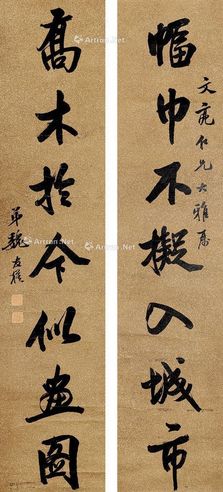 文亮仁兄大雅属
幅巾不擬入城市
喬木於今似畫圖
弟魏友棐